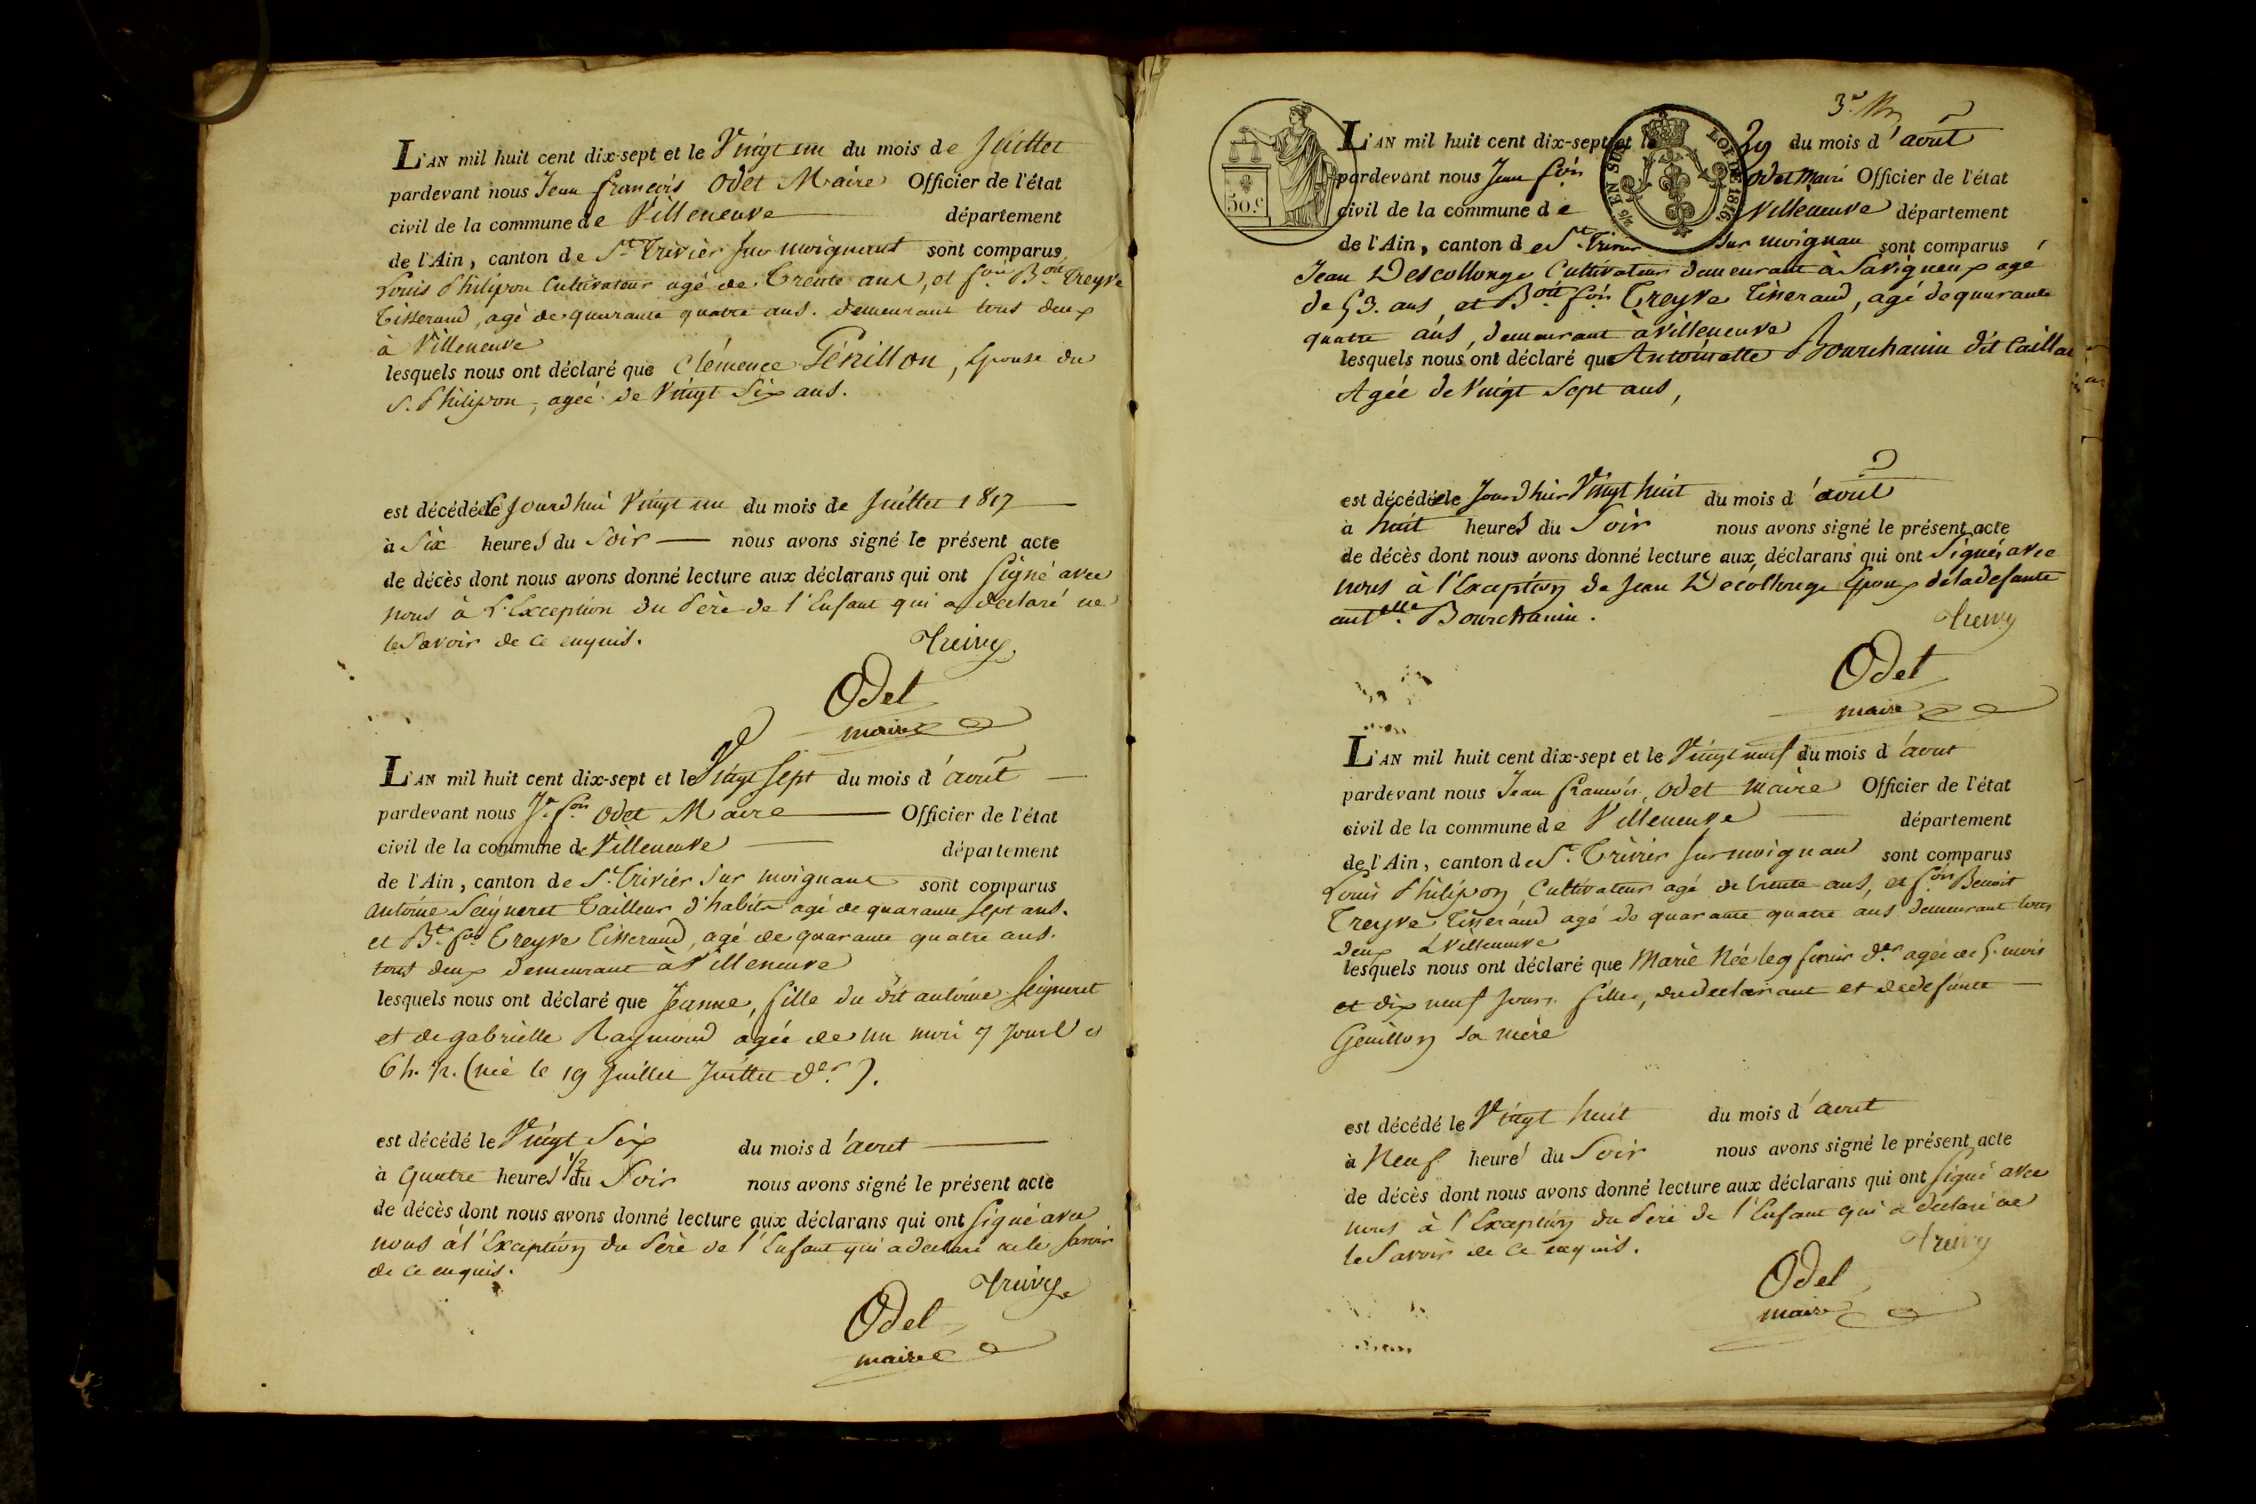 L'AN mil huit cent dix-sept et le Vingt un du mois de Juillet
pardevant nous Jean françois Odet Maire Officier de l'état
civil de la commune de Villeneuve département
de l'Ain, canton de St. Trivier sur moignant sont comparus
Louis Philipon Cultivateur agé de Trente ans, et fois Boit Treyve
Tisserand, agé de quarante quatre ans. demeurant tous deux
à Villeneuve
lesquels nous ont déclaré que Clémence Génillon, Epouse du
S. Philipon, agéé de Vingt Six ans.
est décédé le Jourdhui Vingt un du mois de Juillet 1817
à Six heures du Soir nous avons signé le présent acte
de décès dont nous avons donné lecture aux déclarans qui ont signé avec
nous à L'Exception du Père de l'Enfant qui a déclaré ne
le Savoir de ce enquis.
Treive
Odet
maire
L'AN mil huit cent dix-sept et le Vingt Sept du mois d'août
pardevant nous Jn. fois Odet Maire Officier de l'état
civil de la commune de Villeneuve département
de l'Ain, canton de St. Trivier Sur moignant sont comparus
Antoine Seigneret Tailleur d'habits agé de quarante sept ans.
et Bt. fois Treyve Tisserand, agé de quarante quatre ans.
tous deux demeurant à Villeneuve
lesquels nous ont déclaré que Jeanne, fille du dit antoine Seigneret
et de gabrielle Raymond agée de un mois 7 Jours et
6 h. (née le 19 Juillet Juillet der.).
est décédé le Vingt Six du mois d'aout
à Quatre heures 1/2 du Soir nous avons signé le présent acte
de décès dont nous avons donné lecture aux déclarans qui ont signé avec
nous à l'Exception du Père de l'Enfant qui a déclaré ne le savoir
de ce enquis.
Treive
Odet
maire
L'AN mil huit cent dix-sept et le 29 du mois d'août
pardevant nous Jean fois Odet Maire Officier de l'état
civil de la commune de Villeneuve département
de l'Ain, canton de St. Trivier Sur moignan sont comparus
50.c
EN SUS
LOI DE 1816
Jean Descollonge Cultivateur demeurant à Savigneux agé
de 53. ans, et Boit fois Treyve Tisserand, agé de quarante
quatre ans, demeurant à Villeneuve
lesquels nous ont déclaré que Antoinette Bourchanin dit Caillat
Agée de Vingt Sept ans,
est décédé le Jourdhui Vingt huit du mois d'août
à huit heures du Soir nous avons signé le présent acte
de décès dont nous avons donné lecture aux déclarans qui ont Signés avec
nous à l'Exception de Jean Decollonge Epoux de la defante
antlle Bourchanin.
Treive
Odet
maire
L'AN mil huit cent dix-sept et le Vingt neuf du mois d'aout
pardevant nous Jean francois, Odet Maire Officier de l'état
civil de la commune de Villeneuve département
de l'Ain, canton de St. Trivier sur moignan sont comparus
Louis Philipon Cultivateur agé de trente ans, et fois Benoit
Treyve Tisserand agé de quarante quatre ans demeurant tous
deux à Villeneuve
lesquels nous ont déclaré que Marie Née le 9 der. agée de 5. mois
et dix neuf Jours. fille, du declarant et de defunte
Genillon sa mère
est décédé le Vingt huit du mois d'aout
à Neuf heures du Soir nous avons signé le présent acte
de décès dont nous avons donné lecture aux déclarans qui ont Signé avec
nous à l'Exception du Père de l'Enfant qui a déclaré ne
le Savoir de ce enquis.
Treive
Odet
maire